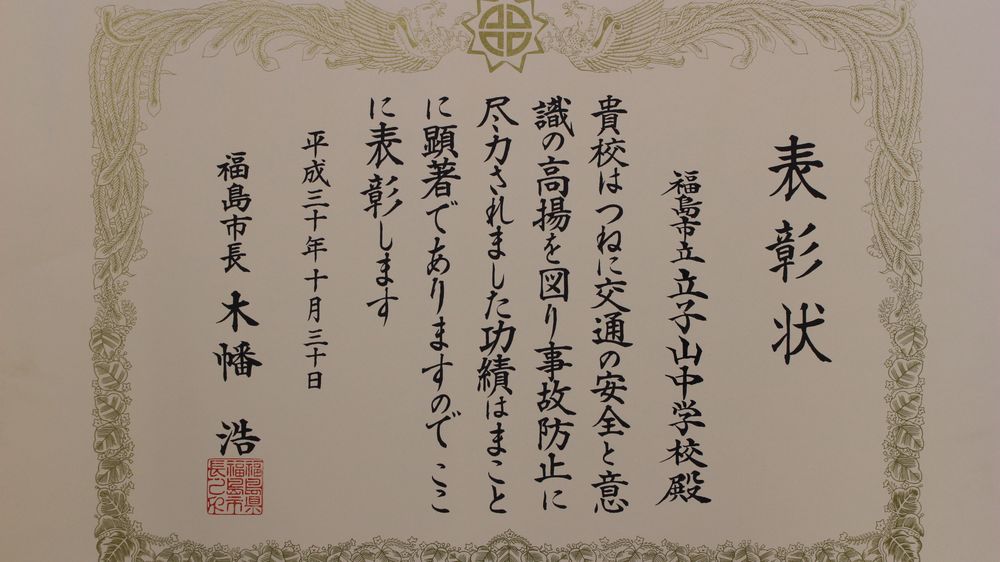 表彰状
福島市立立子山中学校殿
貴校はつねに交通の安全と意
識の高揚を図り事故防止に
尽力されました功績はまこと
に顕著でありますのでここ
に表彰します
平成三十年十月三十日
福島市長 木幡 浩
福島県
福島市
長之印